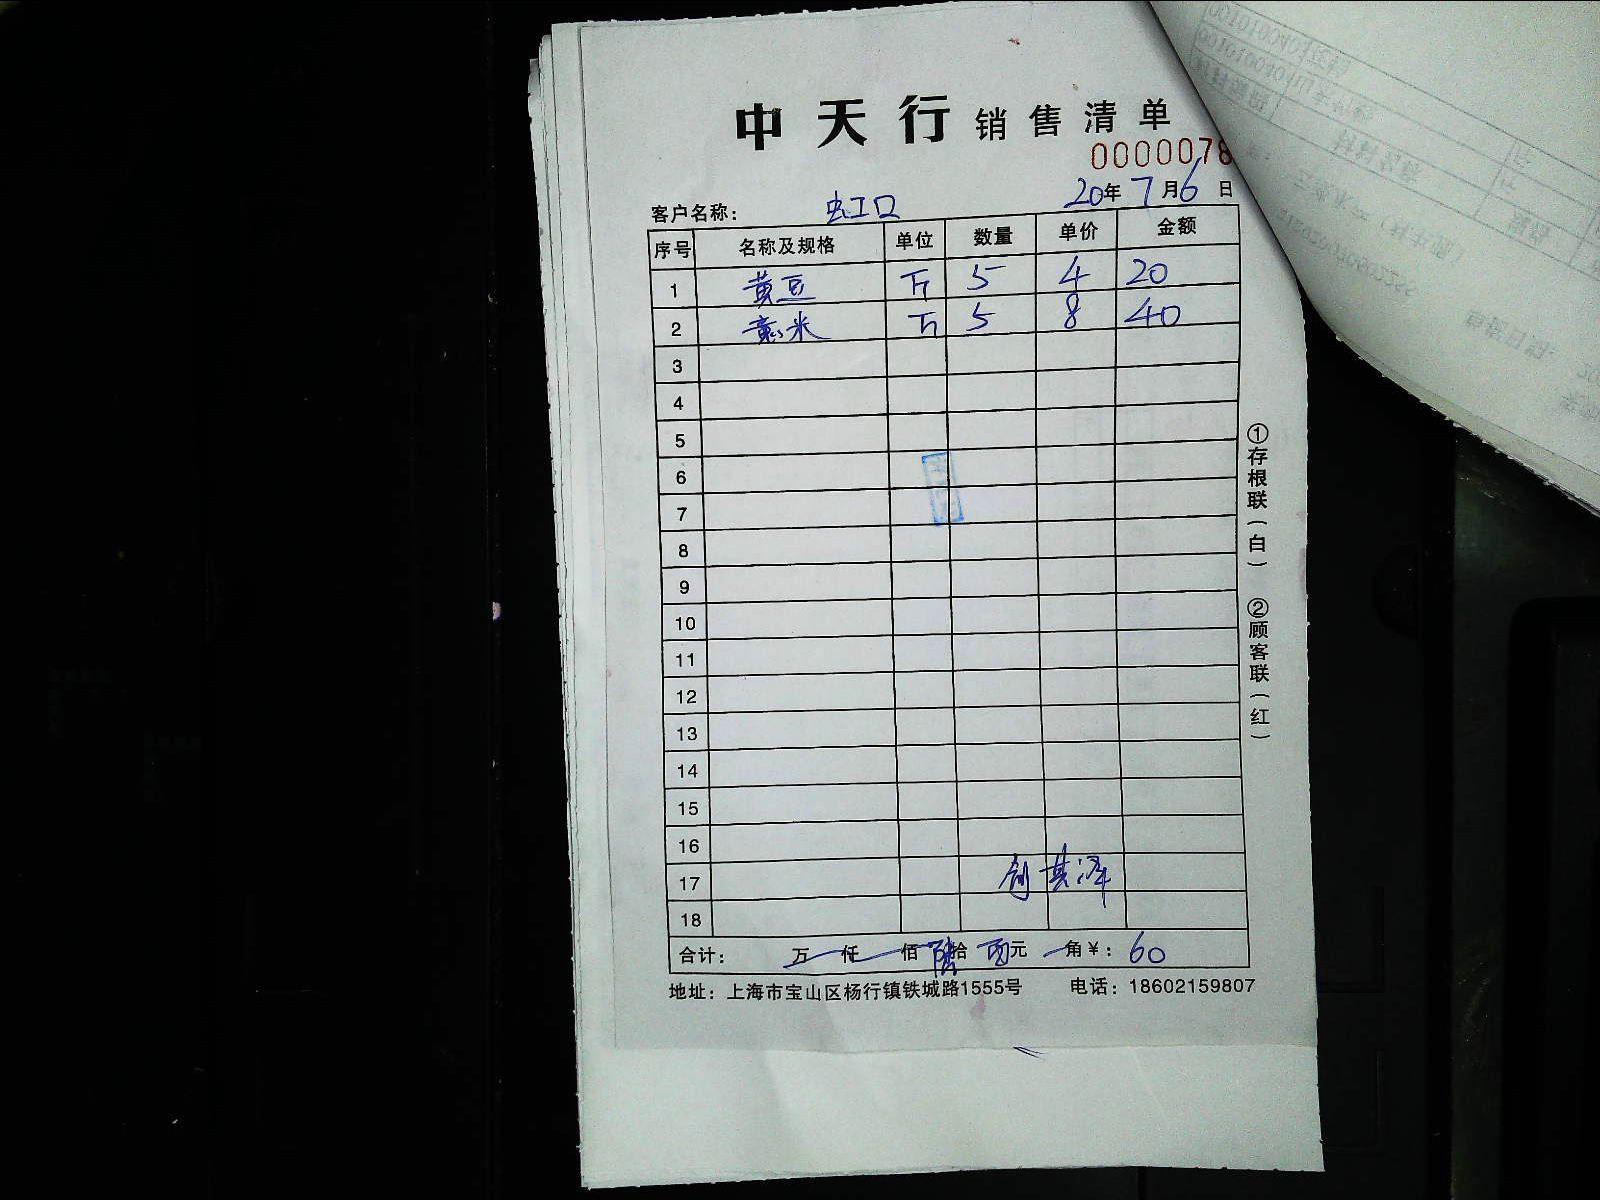 中天行 销售清单
0000078
客户名称： 虹口 20年7月6日
序号 名称及规格 单位 数量 单价 金额
1 黄豆 斤 5 4 20
2 薏米 斤 5 8 40
3
4
5
6
7
8
9
10
11
12
13
14
15
16
17
18
合计： 万 仟 佰 陆拾 元 角￥：60
地址：上海市宝山区杨行镇铁城路1555号 电话：18602159807
①存根联（白） ②顾客联（红）